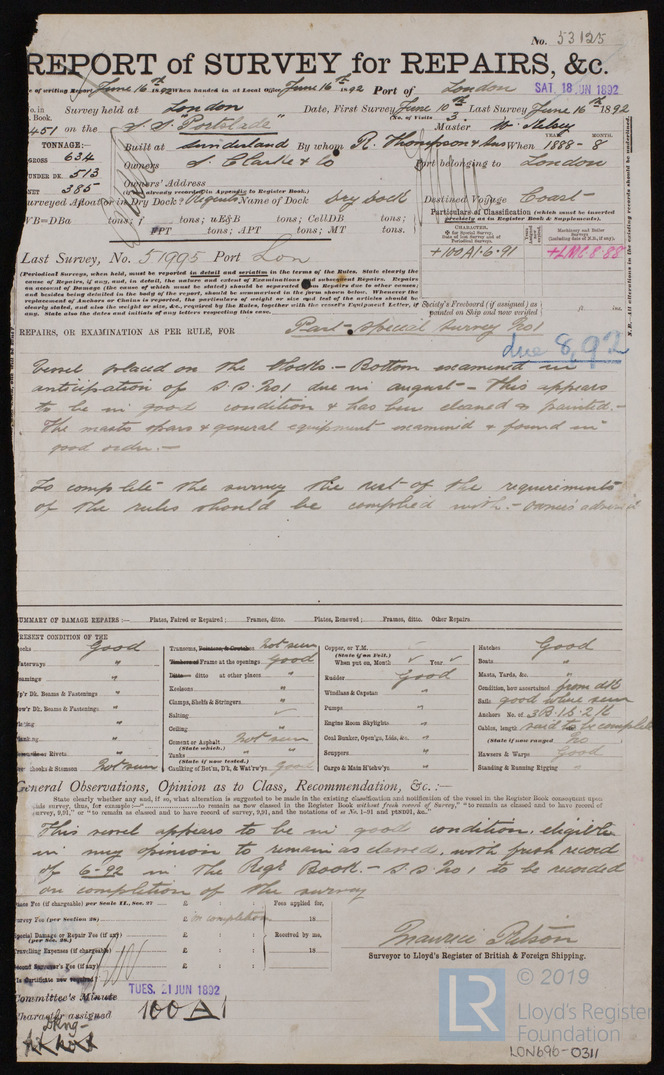 No. 53125
REPORT of SURVEY for REPAIRS, &c.
of writing Report June 16th 1892 When handed in at Local Office June 16th 1892 Port of London SAT. 18 JUN 1892
No. in Book. Survey held at London Date, First Survey June 10th Last Survey June 16th 1892
(No. of Visits 3)
451 on the S.S. "Portslade" Master W. Kelsey
TONNAGE:— Built at Sunderland By whom R. Thompson & Sons When 1888 - 8
YEAR. MONTH.
GROSS 634 Owners S. Clarke & Co Port belonging to London
UNDER DK. 513
NET 385 Owners' Address
(if not already recorded in Appendix to Register Book.)
Surveyed Afloat or in Dry Dock? Regents Name of Dock Dry Dock Destined Voyage Coast
WB=DBa tons; f tons; uE&B tons; CellDB tons;
FPT tons; APT tons; MT tons.
Particulars of Classification (which must be inserted precisely as in Register Book & Supplements).
CHARACTER.
Machinery and Boiler Surveys
(including date of N.B., if any).
+100A1·6·91
+LMC 8·88
Last Survey, No. 51995 Port Lon
(Periodical Surveys, when held, must be reported in detail and seriatim in the terms of the Rules. State clearly the
cause of Repairs, if any, and, in detail, the nature and extent of Examinations and subsequent Repairs. Repairs
on account of Damage (the cause of which must be stated) should be separated from Repairs due to other causes;
and besides being detailed in the body of the report, should be summarised in the form shown below. Whenever the
replacement of Anchors or Chains is reported, the particulars of weight or size and test of the articles should be
clearly stated, and also the weight or size, &c., required by the Rules, together with the vessel's Equipment Letter, if
any. State also the dates and initials of any letters respecting this case.
Society's Freeboard (if assigned) as painted on Ship and now verified ft. ins.
N.B. All alterations in the existing records should be underlined.
REPAIRS, OR EXAMINATION AS PER RULE, FOR Part special survey No 1
due 8,92
Vessel placed on the blocks. - Bottom examined in
anticipation of S.S. No 1 due in August - This appears
to be in good condition & has been cleaned & painted. -
The masts spars & general equipment examined & found in
good order. -
To complete the survey the rest of the requirements
of the rules should be complied with. - Owners advised
SUMMARY OF DAMAGE REPAIRS :— Plates, Faired or Repaired ; Frames, ditto. Plates, Renewed ; Frames, ditto. Other Repairs
PRESENT CONDITION OF THE
Decks Good
Waterways "
Coamings "
Up'r Dk. Beams & Fastenings "
Low'r Dk. Beams & Fastenings "
Plating "
Planking "
Rivets "
Breasthooks & Stemson Not seen
Transoms, Pointers, & Crutches Not seen
Timbers Frame at the openings Good
Ditto ditto at other places "
Keelsons "
Clamps, Shelfs & Stringers "
Salting ✓
Ceiling "
Cement or Asphalt Not seen
(State which.)
Tanks "
(State if now tested.)
Caulking of Bot'm, D'k, & Wat'rw'ys Good
Copper, or Y.M.
(State if on Felt.)
When put on, Month ✓ Year ✓
Rudder Good
Windlass & Capstan "
Pumps "
Engine Room Skylights "
Coal Bunker, Open'gs, Lids, &c. "
Scuppers "
Cargo & Main Hatchw'ys "
Hatches Good
Boats "
Masts, Yards, &c. "
Condition, how ascertained from dk
Sails good where seen
Anchors No. of 3B·1S·2K
Cables, length said to be complete
(State if now ranged) no
Hawsers & Warps Good
Standing & Running Rigging "
General Observations, Opinion as to Class, Recommendation, &c. :—
State clearly whether any and, if so, what alteration is suggested to be made in the existing classification and notification of the vessel in the Register Book consequent upon
this survey, thus, for example :—"..........to remain as now classed in the Register Book without fresh record of Survey," "to remain as classed and to have record of
survey, 9,91," or "to remain as classed and to have record of survey, 9,91, and the notations of ss No. 1-91 and ptND91, &c."
This vessel appears to be in good condition, eligible
in my opinion to remain as classed, with fresh record
of 6-92 in the Regr. Book. - S.S. No 1 to be recorded
on completion of the survey
Fee (if chargeable) per Scale II., Sec. 27 £ : : Fees applied for,
Survey Fee (per Section 28) £ on completion 18
Special Damage or Repair Fee (if any) £ : : Received by me,
(per Sec. 28.)
Travelling Expenses (if chargeable) £ : : 18
Second Surveyor's Fee (if any) £ : :
Is Certificate now required?
Surveyor to Lloyd's Register of British & Foreign Shipping.
Committee's Minute TUES. 21 JUN 1892
Character assigned 100 A 1
© 2019
LR
Lloyd's Register
Foundation
LON696-0311